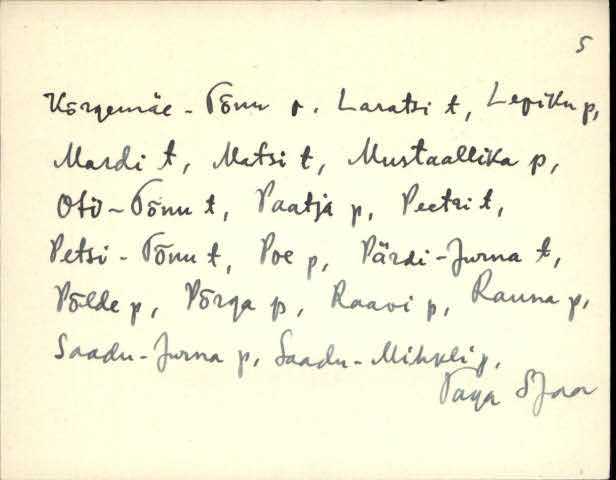 5
Kõrgemäe-Tõnu p. Laratsi t, Lepiku p,
Mardi t, Matsi t, Mustaallika p,
Oti-Tõnu t, Paatja p, Peetri t,
Petsi-Tõnu t, Poe p, Pärdi-Jurna t,
Põlde p, Põrga p, Raavi p, Rauna p,
Saadu-Jurna p, Saadu-Mihkli p,